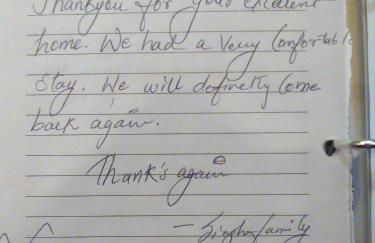 Thankyou for your excellent
home. We had a very Comfortable
Stay. We will definetly Come
back again.
Thank's again
– Singhos family